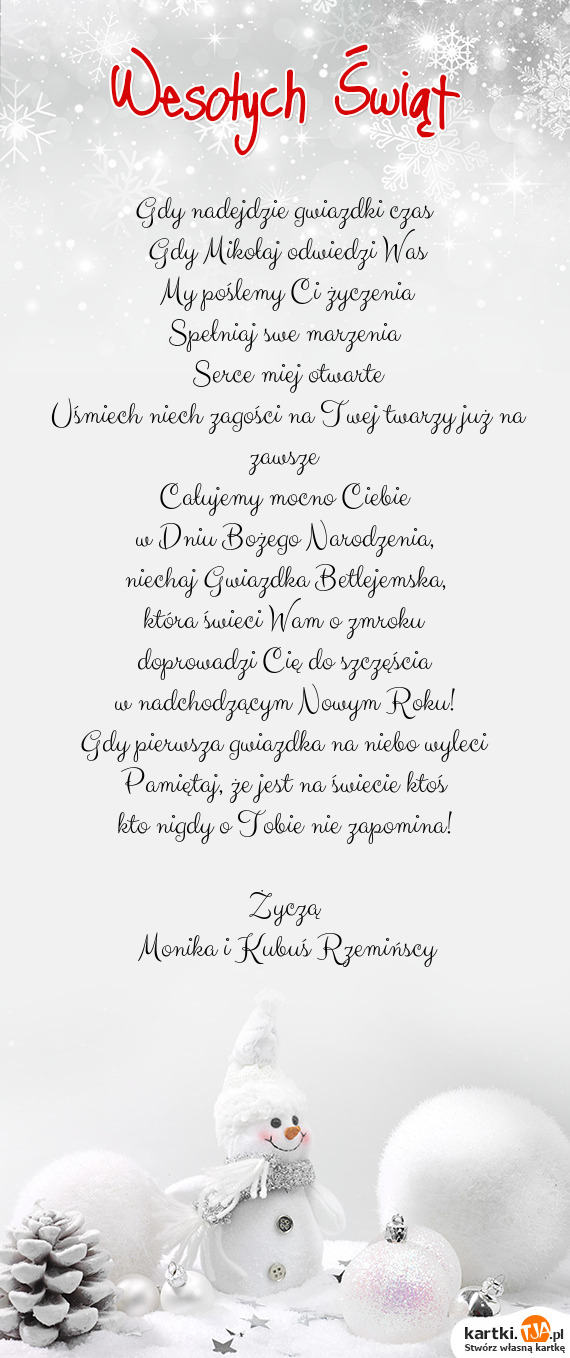 Wesołych Świąt
Gdy nadejdzie gwiazdki czas
Gdy Mikołaj odwiedzi Was
My poślemy Ci życzenia
Spełniaj swe marzenia
Serce miej otwarte
Uśmiech niech zagości na Twej twarzy już na
zawsze
Całujemy mocno Ciebie
w Dniu Bożego Narodzenia,
niechaj Gwiazdka Betlejemska,
która świeci Wam o zmroku
doprowadzi Cię do szczęścia
w nadchodzącym Nowym Roku!
Gdy pierwsza gwiazdka na niebo wyleci
Pamiętaj, że jest na świecie ktoś
kto nigdy o Tobie nie zapomina!
Życzą
Monika i Kubuś Rzemińscy
kartki.TJA.pl
Stwórz własną kartkę